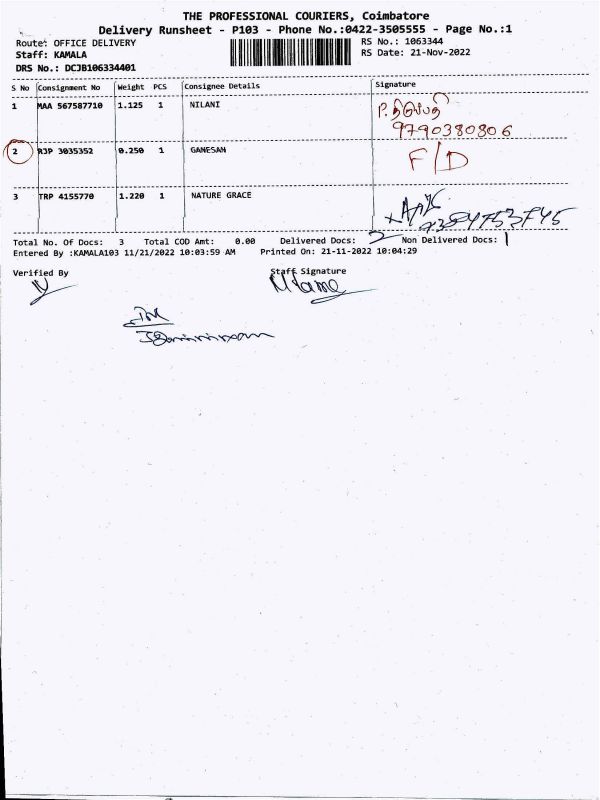 THE PROFESSIONAL COURIERS, Coimbatore
Delivery Runsheet - P103 - Phone No.:0422-3505555 - Page No.:1
Route: OFFICE DELIVERY RS No.: 1063344
Staff: KAMALA RS Date: 21-Nov-2022
DRS No.: DCJB106334401
S No Consignment No Weight PCS Consignee Details Signature
1 MAA 567587710 1.125 1 NILANI
9790380806
2 RJP 3035352 0.250 1 GANESAN F/D
3 TRP 4155770 1.220 1 NATURE GRACE
Total No. Of Docs: 3 Total COD Amt: 0.00 Delivered Docs: 2 Non Delivered Docs: 1
Entered By :KAMALA103 11/21/2022 10:03:59 AM Printed On: 21-11-2022 10:04:29
Verified By Staff Signature